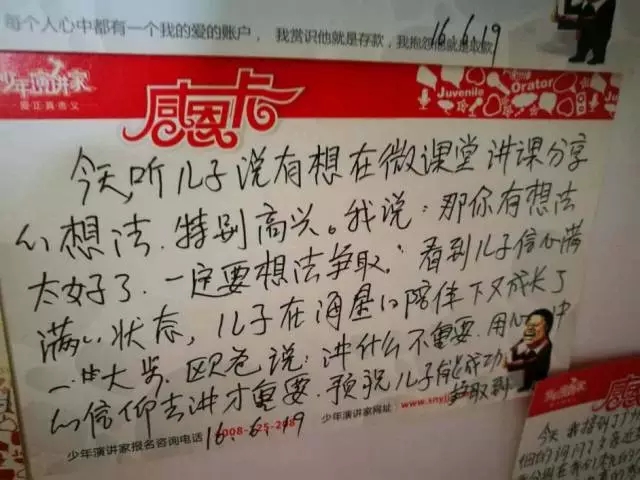 每个人心中都有一个我的爱的账户，我赏识他就是存款，我抱怨他就是取款
16.6.19
少年演讲家
爱正真责义
感恩卡
Juvenile Orator
今天,听儿子说有想在微课堂讲课分享
的想法.特别高兴。我说：那你有想法
太好了.一定要想法争取。看到儿子信心满
满的状态，儿子在海星的陪伴下又成长了
一大步.欧爸说：讲什么不重要.用心中
的信仰去讲才重要.预祝儿子能成功
争取到
少年演讲家报名咨询电话
少年演讲家网址：www.sny
16.6.19
少年演讲家
感恩
今天我接到了